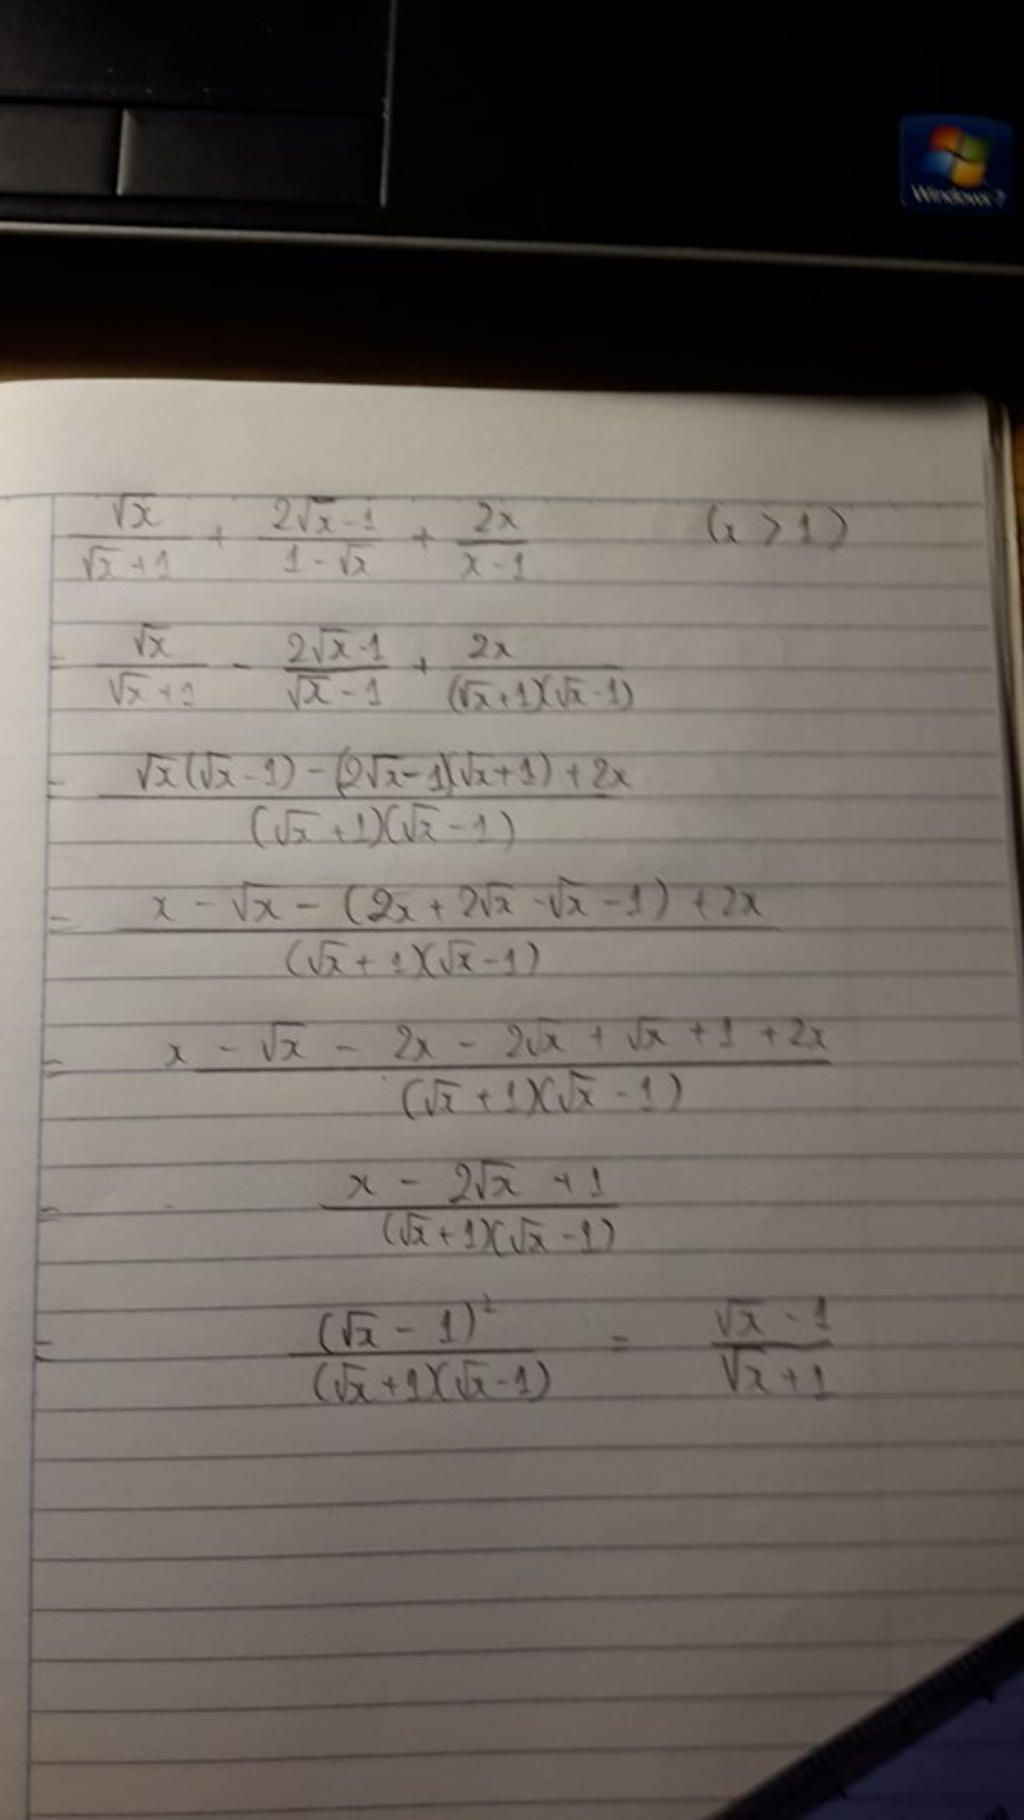 Windows 7
√x/(√x+1) + (2√x-1)/(1-√x) + 2x/(x-1) (x > 1)
= √x/(√x+1) - (2√x-1)/(√x-1) + 2x/((√x+1)(√x-1))
= (√x(√x-1) - (2√x-1)(√x+1) + 2x)/((√x+1)(√x-1))
= (x - √x - (2x + 2√x - √x - 1) + 2x)/((√x+1)(√x-1))
= (x - √x - 2x - 2√x + √x + 1 + 2x)/((√x+1)(√x-1))
= (x - 2√x + 1)/((√x+1)(√x-1))
= (√x-1)²/((√x+1)(√x-1)) = (√x-1)/(√x+1)